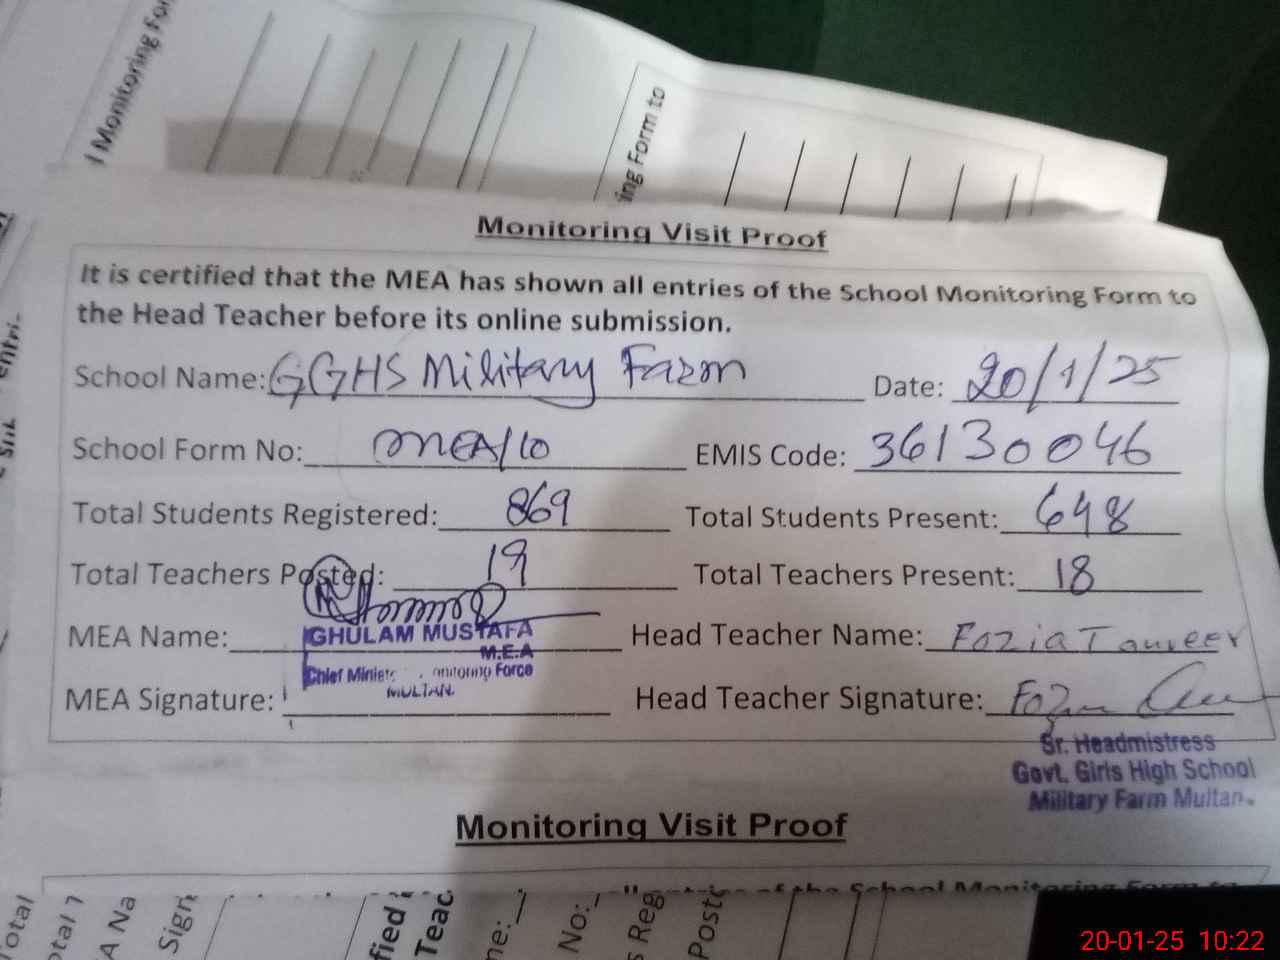 l Monitoring For
ing Form to
Monitoring Visit Proof
It is certified that the MEA has shown all entries of the School Monitoring Form to
the Head Teacher before its online submission.
School Name: GGHS Military Farm Date: 20/1/25
School Form No: MEA/10 EMIS Code: 36130046
Total Students Registered: 869 Total Students Present: 648
Total Teachers Posted: 19 Total Teachers Present: 18
MEA Name: GHULAM MUSTAFA Head Teacher Name: Fozia Tanveer
M.E.A
Chief Minist onitoring Force
MULTAN.
MEA Signature: Head Teacher Signature:
Sr. Headmistress
Govt. Girls High School
Military Farm Multan.
Monitoring Visit Proof
of the School Monitoring Form to
Total
otal T
A Na
Sign
fied
Teac
ne:
No:
Reg
Poste
20-01-25 10:22